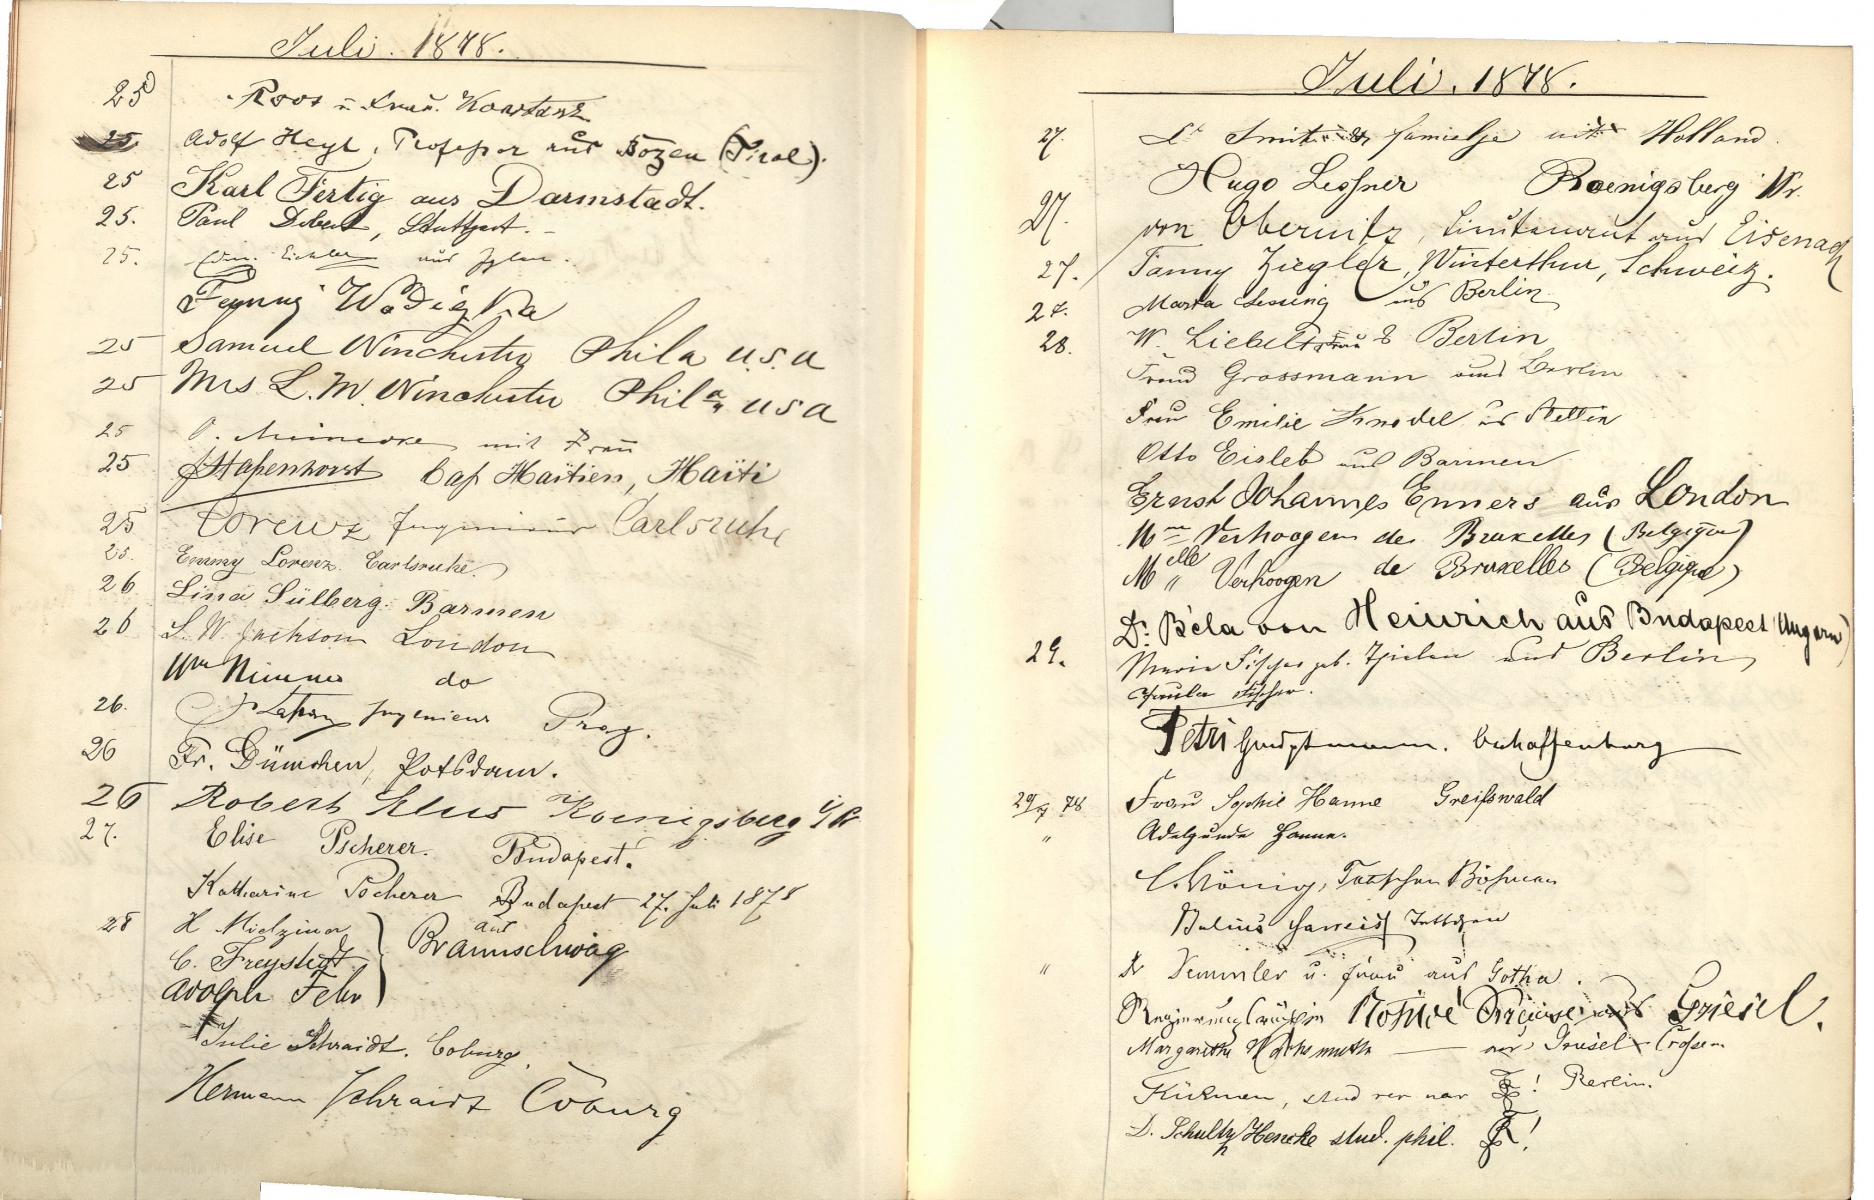 Juli. 1878.
25 Roos u. Frau. Konstanz
25. Adolf Heyl, Professor aus Bozen (Tirol).
25 Karl Fertig aus Darmstadt.
25. Paul Stuttgart.
25. aus
Fanny Wodiczka
25 Samuel Winchester Phila U.S.A
25 Mrs L. M. Winchester Phila U S A
25 O. Meinecke mit Frau
25 Stapenhorst Cap Haïtien, Haïti
25 Lorenz Ingenieur Carlsruhe
25. Emmy Lorenz. Carlsruhe.
26 Lina Sülberg. Barmen
26 S. W. Jackson London
Wm Nimmo do
26. Ingenieur Prag.
26 Fr. Dümchen, Potsdam.
26 Robert Koenigsberg i/Pr
27. Elise Pscherer. Budapest.
Katharine Pscherer Budapest 27. Juli 1878
28 H Mielziner
C. Freystedt aus Braunschweig
Adolph Fehr
Julie Schraidt. Coburg.
Hermann Schraidt Coburg
Juli. 1878.
27. Smit familje uit Holland.
Hugo Lessner Koenigsberg Pr.
27. von Obernitz, Lieutenant aus Eisenach
27. Fanny Ziegler, Winterthur, Schweiz.
27. Marta Lessing aus Berlin
28. W. Liebelt Berlin
Grossmann aus Berlin
Frau Emilie Knodel aus Stettin
Otto Eisleb aus Barmen
Ernst Johannes Enners aus London
Mme Verhoogen de Bruxelles (Belgique)
Melle " Verhoogen de Bruxelles (Belgique)
Dr. Béla von Heinrich aus Budapest (Ungarn)
29. Maria Fischer geb. Thielen aus Berlin
Paula Fischer.
Petri Hauptmann. Aschaffenburg
29/7 78 Frau Sophie Hanne Greifswald
" Adelgunde Hanne.
C. König, Tetschen Böhmen
Julius Tetschen
" Dr Demmler u. Frau aus Gotha.
Regierungsräthin Krause aus Griesel.
Margarethe Wachsmuth — aus Griesel Crossen
stud rer nat ! Berlin.
D. Schultz Hencke stud. phil. !